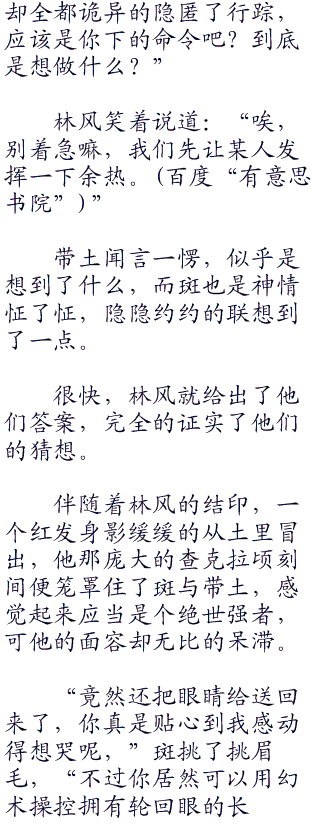 却全都诡异的隐匿了行踪，
应该是你下的命令吧？到底
是想做什么？”
林风笑着说道：“唉，
别着急嘛，我们先让某人发
挥一下余热。(百度“有意思
书院”)”
带土闻言一愣，似乎是
想到了什么，而斑也是神情
怔了怔，隐隐约约的联想到
了一点。
很快，林风就给出了他
们答案，完全的证实了他们
的猜想。
伴随着林风的结印，一
个红发身影缓缓的从土里冒
出，他那庞大的查克拉顷刻
间便笼罩住了斑与带土，感
觉起来应当是个绝世强者，
可他的面容却无比的呆滞。
“竟然还把眼睛给送回
来了，你真是贴心到我感动
得想哭呢，”斑挑了挑眉
毛，“不过你居然可以用幻
术操控拥有轮回眼的长